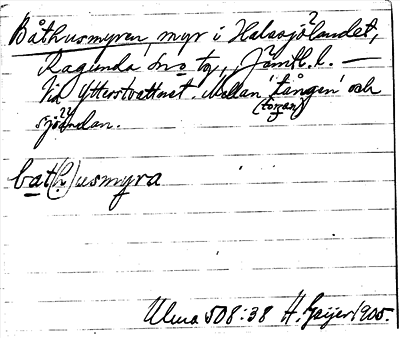 Båthusmyren, myr i Halasjölandet,
Ragunda sn o tg, Jämtl. l. —
Vid Ytterstvattnet. Mellan 'tången' och
(torran)
sjöändan.
bat(h)usmyra
Ulma 508:38 H. Geijer 1905.